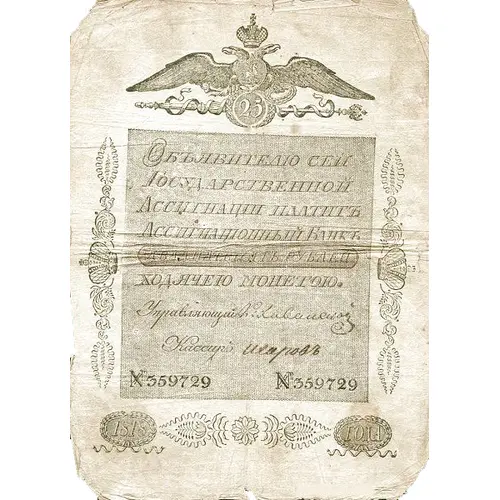 25
Объявителю сей
Государственной
Ассигнации платитъ
Ассигнационный Банкъ
двадцать пять рублей
ходячею монетою.
Управляющій
Кассиръ
№359729 №359729
1818 года